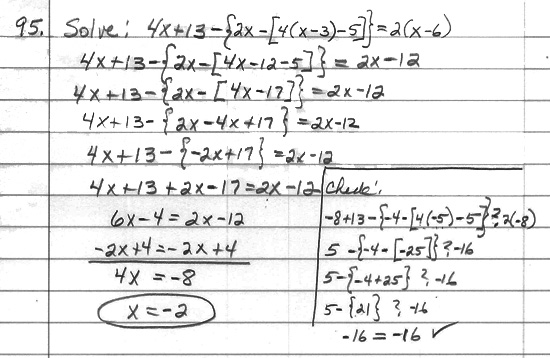 95. Solve: 4x+13-{2x-[4(x-3)-5]}=2(x-6)
4x+13-{2x-[4x-12-5]}=2x-12
4x+13-{2x-[4x-17]}=2x-12
4x+13-{2x-4x+17}=2x-12
4x+13-{-2x+17}=2x-12
4x+13+2x-17=2x-12
6x-4=2x-12
-2x+4=-2x+4
4x=-8
x=-2
Check:
-8+13-{-4-[4(-5)-5]}?2(-8)
5-{-4-[-25]}?-16
5-{-4+25}?-16
5-{21}?-16
-16=-16✓